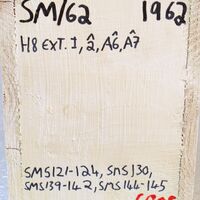 SM/62 1962
H8 EXT. I, â, A6̂, A7̂
SMS121-124, SMS130,
SMS139-142, SMS144-145